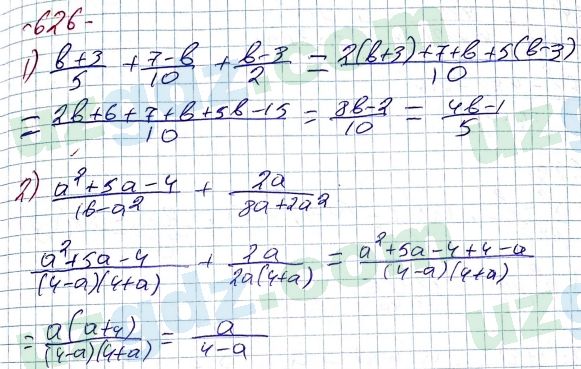 -626-
1) (в+3)/5 + (7-в)/10 + (в-3)/2 = (2(в+3)+7+в+5(в-3))/10
= (2в+6+7+в+5в-15)/10 = (8в-2)/10 = (4в-1)/5
2) (a²+5a-4)/(16-a²) + 2a/(8a+2a²)
(a²+5a-4)/((4-a)(4+a)) + 2a/(2a(4+a)) = (a²+5a-4+4-a)/((4-a)(4+a))
= a(a+4)/((4-a)(4+a)) = a/(4-a)
uzgdz.com